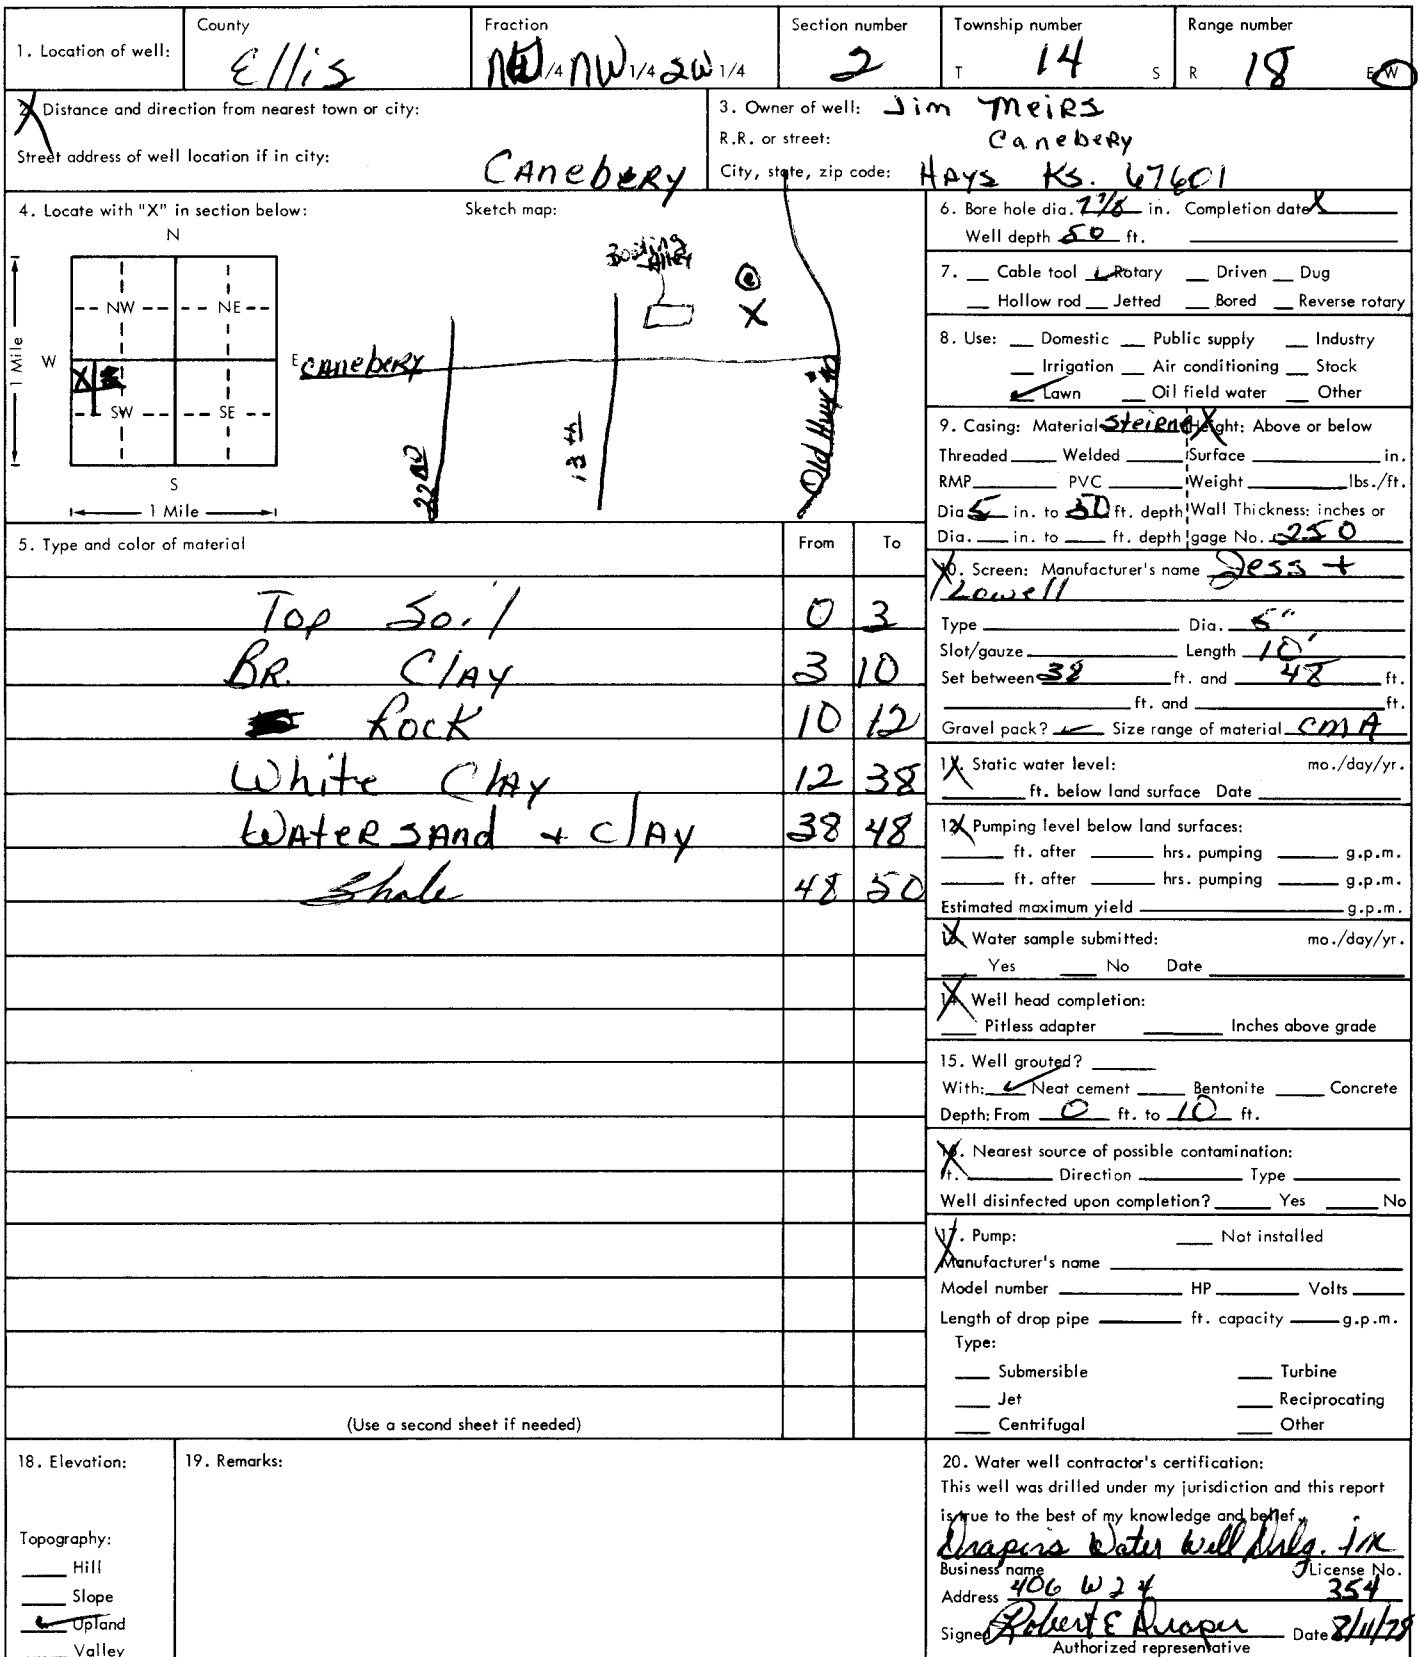 County Fraction Section number Township number Range number
1. Location of well: Ellis 1/4 NW 1/4 SW 1/4 2 T 14 S R 18 E W
2. Distance and direction from nearest town or city:
Street address of well location if in city: CANebeRY
3. Owner of well: Jim Meirs
R.R. or street: CanebeRy
City, state, zip code: HAYS Ks. 67601
4. Locate with "X" in section below: Sketch map:
N
NW NE
W E
X
SW SE
S
1 Mile
1 Mile
Alley
X
CANebeRY
22ND
13th
Old Hwy 40
5. Type and color of material From To
Top Soil 0 3
BR. CLAY 3 10
Rock 10 12
White CLAY 12 38
WAteR SANd + ClAY 38 48
Shale 48 50
(Use a second sheet if needed)
6. Bore hole dia. 7 7/8 in. Completion date
Well depth 50 ft.
7. Cable tool Rotary Driven Dug
Hollow rod Jetted Bored Reverse rotary
8. Use: Domestic Public supply Industry
Irrigation Air conditioning Stock
Lawn Oil field water Other
9. Casing: Material Height: Above or below
Threaded Welded Surface in.
RMP PVC Weight lbs./ft.
Dia 5 in. to 50 ft. depth Wall Thickness: inches or
Dia. in. to ft. depth gage No. .250
10. Screen: Manufacturer's name Jess +
Lowell
Type Dia. 5"
Slot/gauze Length 10'
Set between 38 ft. and 48 ft.
ft. and ft.
Gravel pack? Size range of material CMA
11. Static water level: mo./day/yr.
ft. below land surface Date
12. Pumping level below land surfaces:
ft. after hrs. pumping g.p.m.
ft. after hrs. pumping g.p.m.
Estimated maximum yield g.p.m.
13. Water sample submitted: mo./day/yr.
Yes No Date
14. Well head completion:
Pitless adapter Inches above grade
15. Well grouted?
With: Neat cement Bentonite Concrete
Depth: From 0 ft. to 10 ft.
16. Nearest source of possible contamination:
ft. Direction Type
Well disinfected upon completion? Yes No
17. Pump: Not installed
Manufacturer's name
Model number HP Volts
Length of drop pipe ft. capacity g.p.m.
Type:
Submersible Turbine
Jet Reciprocating
Centrifugal Other
18. Elevation:
Topography:
Hill
Slope
Upland
Valley
19. Remarks:
20. Water well contractor's certification:
This well was drilled under my jurisdiction and this report
is true to the best of my knowledge and belief.
Drapers Water Well Drlg. Inc
Business name License No.
Address 406 W 24 354
Signed Robert E Draper Date 8/11/78
Authorized representative